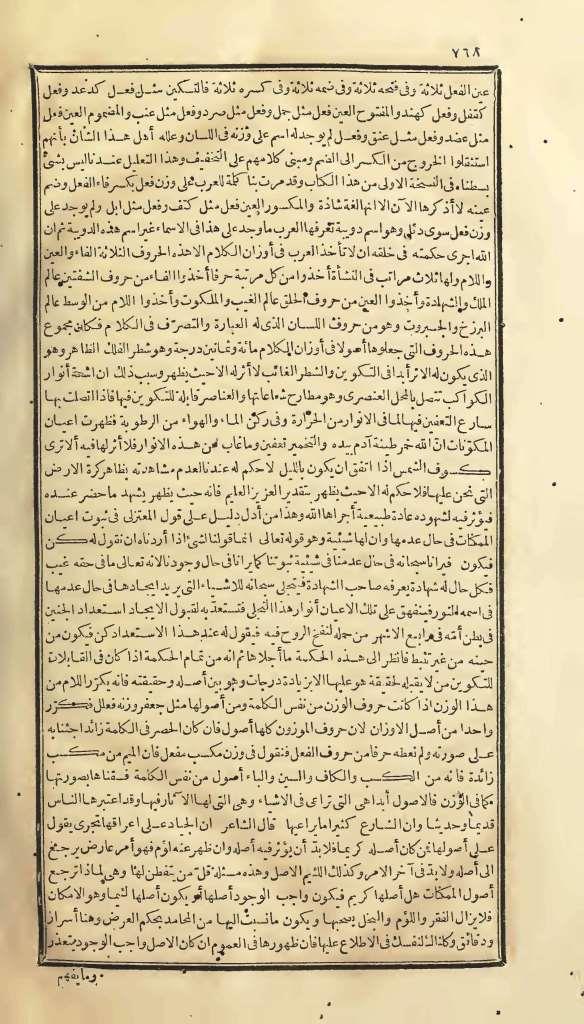 ٧٦٨
عين الفعل ثلاثة وفى فتحه ثلاثة وفى ضمه ثلاثة وفى كسره ثلاثة فالتسكين مثل فعل كدعد وفعل
كقفل وفعل كهند والمفتوح العين فعل مثل جمل وفعل مثل صرد وفعل مثل عنب والمضموم العين فعل
مثل عضد وفعل مثل عنق وفعل لم يوجد له اسم على وزنه فى اللسان وعلله أهل هذا الشأن بأنهم
استثقلوا الخروج من الكسر الى الضم ومبنى كلامهم على التخفيف وهذا التعليل عندنا ليس بشئ
بسطناه فى النسخة الاولى من هذا الكتاب وقد مرت بنا كلمة للعرب على وزن فعل بكسر فاء الفعل وضم
عينه لا أذكرها الآن الا انها لغة شاذة والمكسور العين فعل مثل كتف وفعل مثل ابل ولم يوجد على
وزن فعل سوى دئل وهو اسم دويبة تعرفها العرب ما وجد على هذا فى الاسماء غير اسم هذه الدويبة ثم ان
الله اجرى حكمته فى خلقه ان لا تأخذ العرب فى أوزان الكلام الا هذه الحروف الثلاثة الفاء والعين
واللام ولها ثلاث مراتب فى النشأة أخذوا من كل مرتبة حرفا أخذوا الفاء من حروف الشفتين عالم
الملك والشهادة وأخذوا العين من حروف الحلق عالم الغيب والملكوت وأخذوا اللام من الوسط عالم
البرزخ والجبروت وهو من حروف اللسان الذى له العبارة والتصرف فى الكلام فكان مجموع
هذه الحروف التى جعلوها أصولا فى أوزان الكلام مائة وثمانين درجة وهو شطر الفلك الظاهر وهو
الذى يكون له الاثر أبدا فى التكوين والشطر الغائب لا أثر له الا حيث يظهر وسبب ذلك ان اشعة أنوار
الكواكب تتصل بالمحل العنصرى وهو مطارح شعاعاتها والعناصر قابلة للتكوين فيها فاذا اتصلت بها
سارع التعفين فيها لما فى الانوار من الحرارة وفى ركنى الماء والهواء من الرطوبة فظهرت اعيان
المكونات ان الله خمر طينة آدم بيده والتخمير تعفين وما غاب عن هذه الانوار فلا أثر لها فيه ألا ترى
كسوف الشمس اذا اتفق ان يكون بالليل لا حكم له عندنا لعدم مشاهدته بظاهر كرة الارض
التى نحن عليها فلا حكم له الا حيث يظهر بتقدير العزيز العليم فانه حيث يظهر يشهد ما حضر عنده
فيؤثر فيه لشهوده عادة طبيعية أجراها الله وهذا من أدل دليل على قول المعتزلى فى ثبوت اعيان
الممكنات فى حال عدمها وان لها شيئية وهو قوله تعالى انما قولنا لشئ اذا أردناه ان نقول له كن
فيكون فيرانا سبحانه فى حال عدمنا فى شيئية ثبوتنا كما يرانا فى حال وجودنا لانه تعالى ما فى حقه غيب
فكل حال له شهادة يعرفه صاحب الشهادة فيتجلى سبحانه للاشياء التى يريد ايجادها فى حال عدمها
فى اسمه النور فينفهق على تلك الاعيان أنوار هذا التجلى فتستعد به لقبول الايجاد استعداد الجنين
فى بطن أمه فى رابع الاشهر من حمله لنفخ الروح فيه فيقول له عند هذا الاستعداد كن فيكون من
حينه من غير تثبط فانظر الى هذه الحكمة ما أجلاها ثم انه من تمام الحكمة اذا كان فى القابلات
للتكوين من لا يقبله لحقيقة هو عليها الا بزيادة درجات وهو بين أصله وحقيقته فانه يكرر اللام من
هذا الوزن اذا كانت حروف الوزن من نفس الكلمة ومن أصولها مثل جعفر وزنه فعلل فكرر
واحدا من أصل الاوزان لان حروف الموزون كلها أصول فان كان الحصر فى الكلمة زائدا جئنا به
على صورته ولم نعطه حرفا من حروف الفعل فنقول فى وزن مكسب مفعل فان الميم من مكسب
زائدة فانه من الكسب والكاف والسين والباء أصول من نفس الكلمة فسقناها بصورتها
كما فى الوزن فالاصول أبدا هى التى تراعى فى الاشياء وهى التى لها الآثار فيها وقد اعتبرها الناس
قديما وحديثا وان الشارع كثيرا ما يراعيها قال الشاعر ان الجياد على اعراقها تجرى يقول
على أصولها فمن كان أصله كريما فلا بد أن يؤثر فيه أصله وان ظهر عنه لؤم فهو أمر عارض يرجع
الى أصله ولا بد فى آخر الامر وكذلك اللئيم الاصل وهذه مسئلة قل من يتفطن لها وهى لماذا ترجع
أصول الممكنات هل أصلها كريم فيكون واجب الوجود أصلها أو يكون أصلها لئيما وهو الامكان
فلا يزال الفقر واللؤم والبخل يصحبها ويكون ما نسبت اليها من المحامد بحكم العرض وهنا أسرار
ودقائق وكلنا لنفسك فى الاطلاع عليها فان ظهورها فى العموم ان كان الاصل واجب الوجود يتعذر
وما يفهم